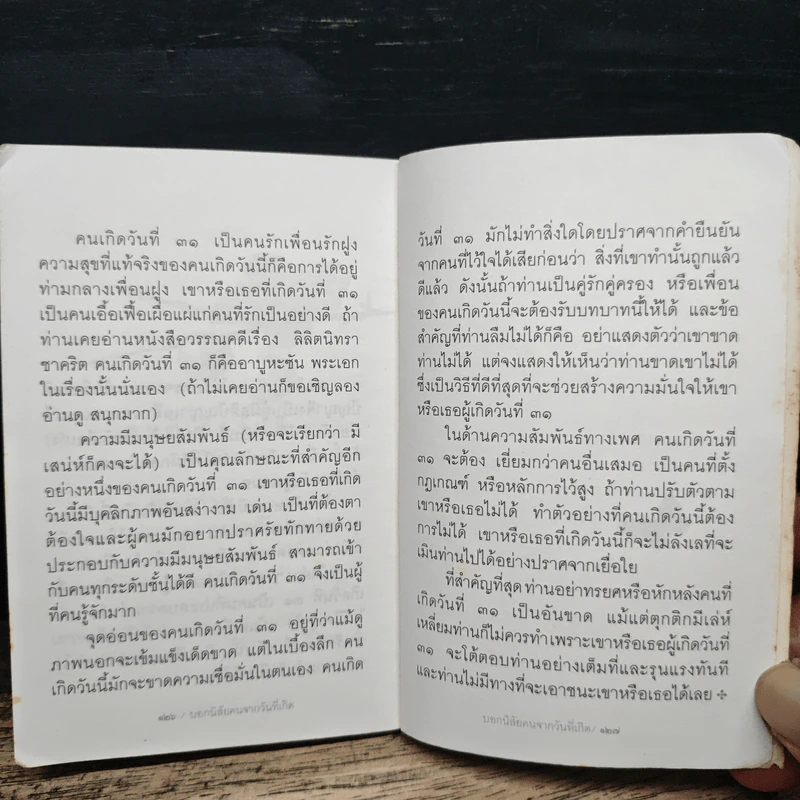 คนเกิดวันที่ ๓๑ เป็นคนรักเพื่อนรักฝูง
ความสุขที่แท้จริงของคนเกิดวันนี้ก็คือการได้อยู่
ท่ามกลางเพื่อนฝูง เขาหรือเธอที่เกิดวันที่ ๓๑
เป็นคนเอื้อเฟื้อเผื่อแผ่แก่คนที่รักเป็นอย่างดี ถ้า
ท่านเคยอ่านหนังสือวรรณคดีเรื่อง ลิลิตนิทรา
ชาคริต คนเกิดวันที่ ๓๑ ก็คืออาบูหะซัน พระเอก
ในเรื่องนั้นนั่นเอง (ถ้าไม่เคยอ่านก็ขอเชิญลอง
อ่านดู สนุกมาก)
ความมีมนุษยสัมพันธ์ (หรือจะเรียกว่า มี
เสน่ห์ก็คงจะได้) เป็นคุณลักษณะที่สำคัญอีก
อย่างหนึ่งของคนเกิดวันที่ ๓๑ เขาหรือเธอที่เกิด
วันนี้มีบุคลิกภาพอันสง่างาม เด่น เป็นที่ต้องตา
ต้องใจและผู้คนมักอยากปราศรัยทักทายด้วย
ประกอบกับความมีมนุษยสัมพันธ์ สามารถเข้า
กับคนทุกระดับชั้นได้ดี คนเกิดวันที่ ๓๑ จึงเป็นผู้
ที่คนรู้จักมาก
จุดอ่อนของคนเกิดวันที่ ๓๑ อยู่ที่ว่าแม้ดู
ภาพนอกจะเข้มแข็งเด็ดขาด แต่ในเบื้องลึก คน
เกิดวันนี้มักจะขาดความเชื่อมั่นในตนเอง คนเกิด
๑๒๖ / บอกนิสัยคนจากวันที่เกิด
วันที่ ๓๑ มักไม่ทำสิ่งใดโดยปราศจากคำยืนยัน
จากคนที่ไว้ใจได้เสียก่อนว่า สิ่งที่เขาทำนั้นถูกแล้ว
ดีแล้ว ดังนั้นถ้าท่านเป็นคู่รักคู่ครอง หรือเพื่อน
ของคนเกิดวันนี้จะต้องรับบทบาทนี้ให้ได้ และข้อ
สำคัญที่ท่านลืมไม่ได้ก็คือ อย่าแสดงตัวว่าเขาขาด
ท่านไม่ได้ แต่จงแสดงให้เห็นว่าท่านขาดเขาไม่ได้
ซึ่งเป็นวิธีที่ดีที่สุดที่จะช่วยสร้างความมั่นใจให้เขา
หรือเธอผู้เกิดวันที่ ๓๑
ในด้านความสัมพันธ์ทางเพศ คนเกิดวันที่
๓๑ จะต้อง เยี่ยมกว่าคนอื่นเสมอ เป็นคนที่ตั้ง
กฎเกณฑ์ หรือหลักการไว้สูง ถ้าท่านปรับตัวตาม
เขาหรือเธอไม่ได้ ทำตัวอย่างที่คนเกิดวันนี้ต้อง
การไม่ได้ เขาหรือเธอที่เกิดวันนี้ก็จะไม่ลังเลที่จะ
เมินท่านไปได้อย่างปราศจากเยื่อใย
ที่สำคัญที่สุด ท่านอย่าทรยศหรือหักหลังคนที่
เกิดวันที่ ๓๑ เป็นอันขาด แม้แต่ตุกติกมีเล่ห์
เหลี่ยมท่านก็ไม่ควรทำเพราะเขาหรือเธอผู้เกิดวันที่
๓๑ จะโต้ตอบท่านอย่างเต็มที่และรุนแรงทันที
และท่านไม่มีทางที่จะเอาชนะเขาหรือเธอได้เลย
บอกนิสัยคนจากวันที่เกิด/ ๑๒๗